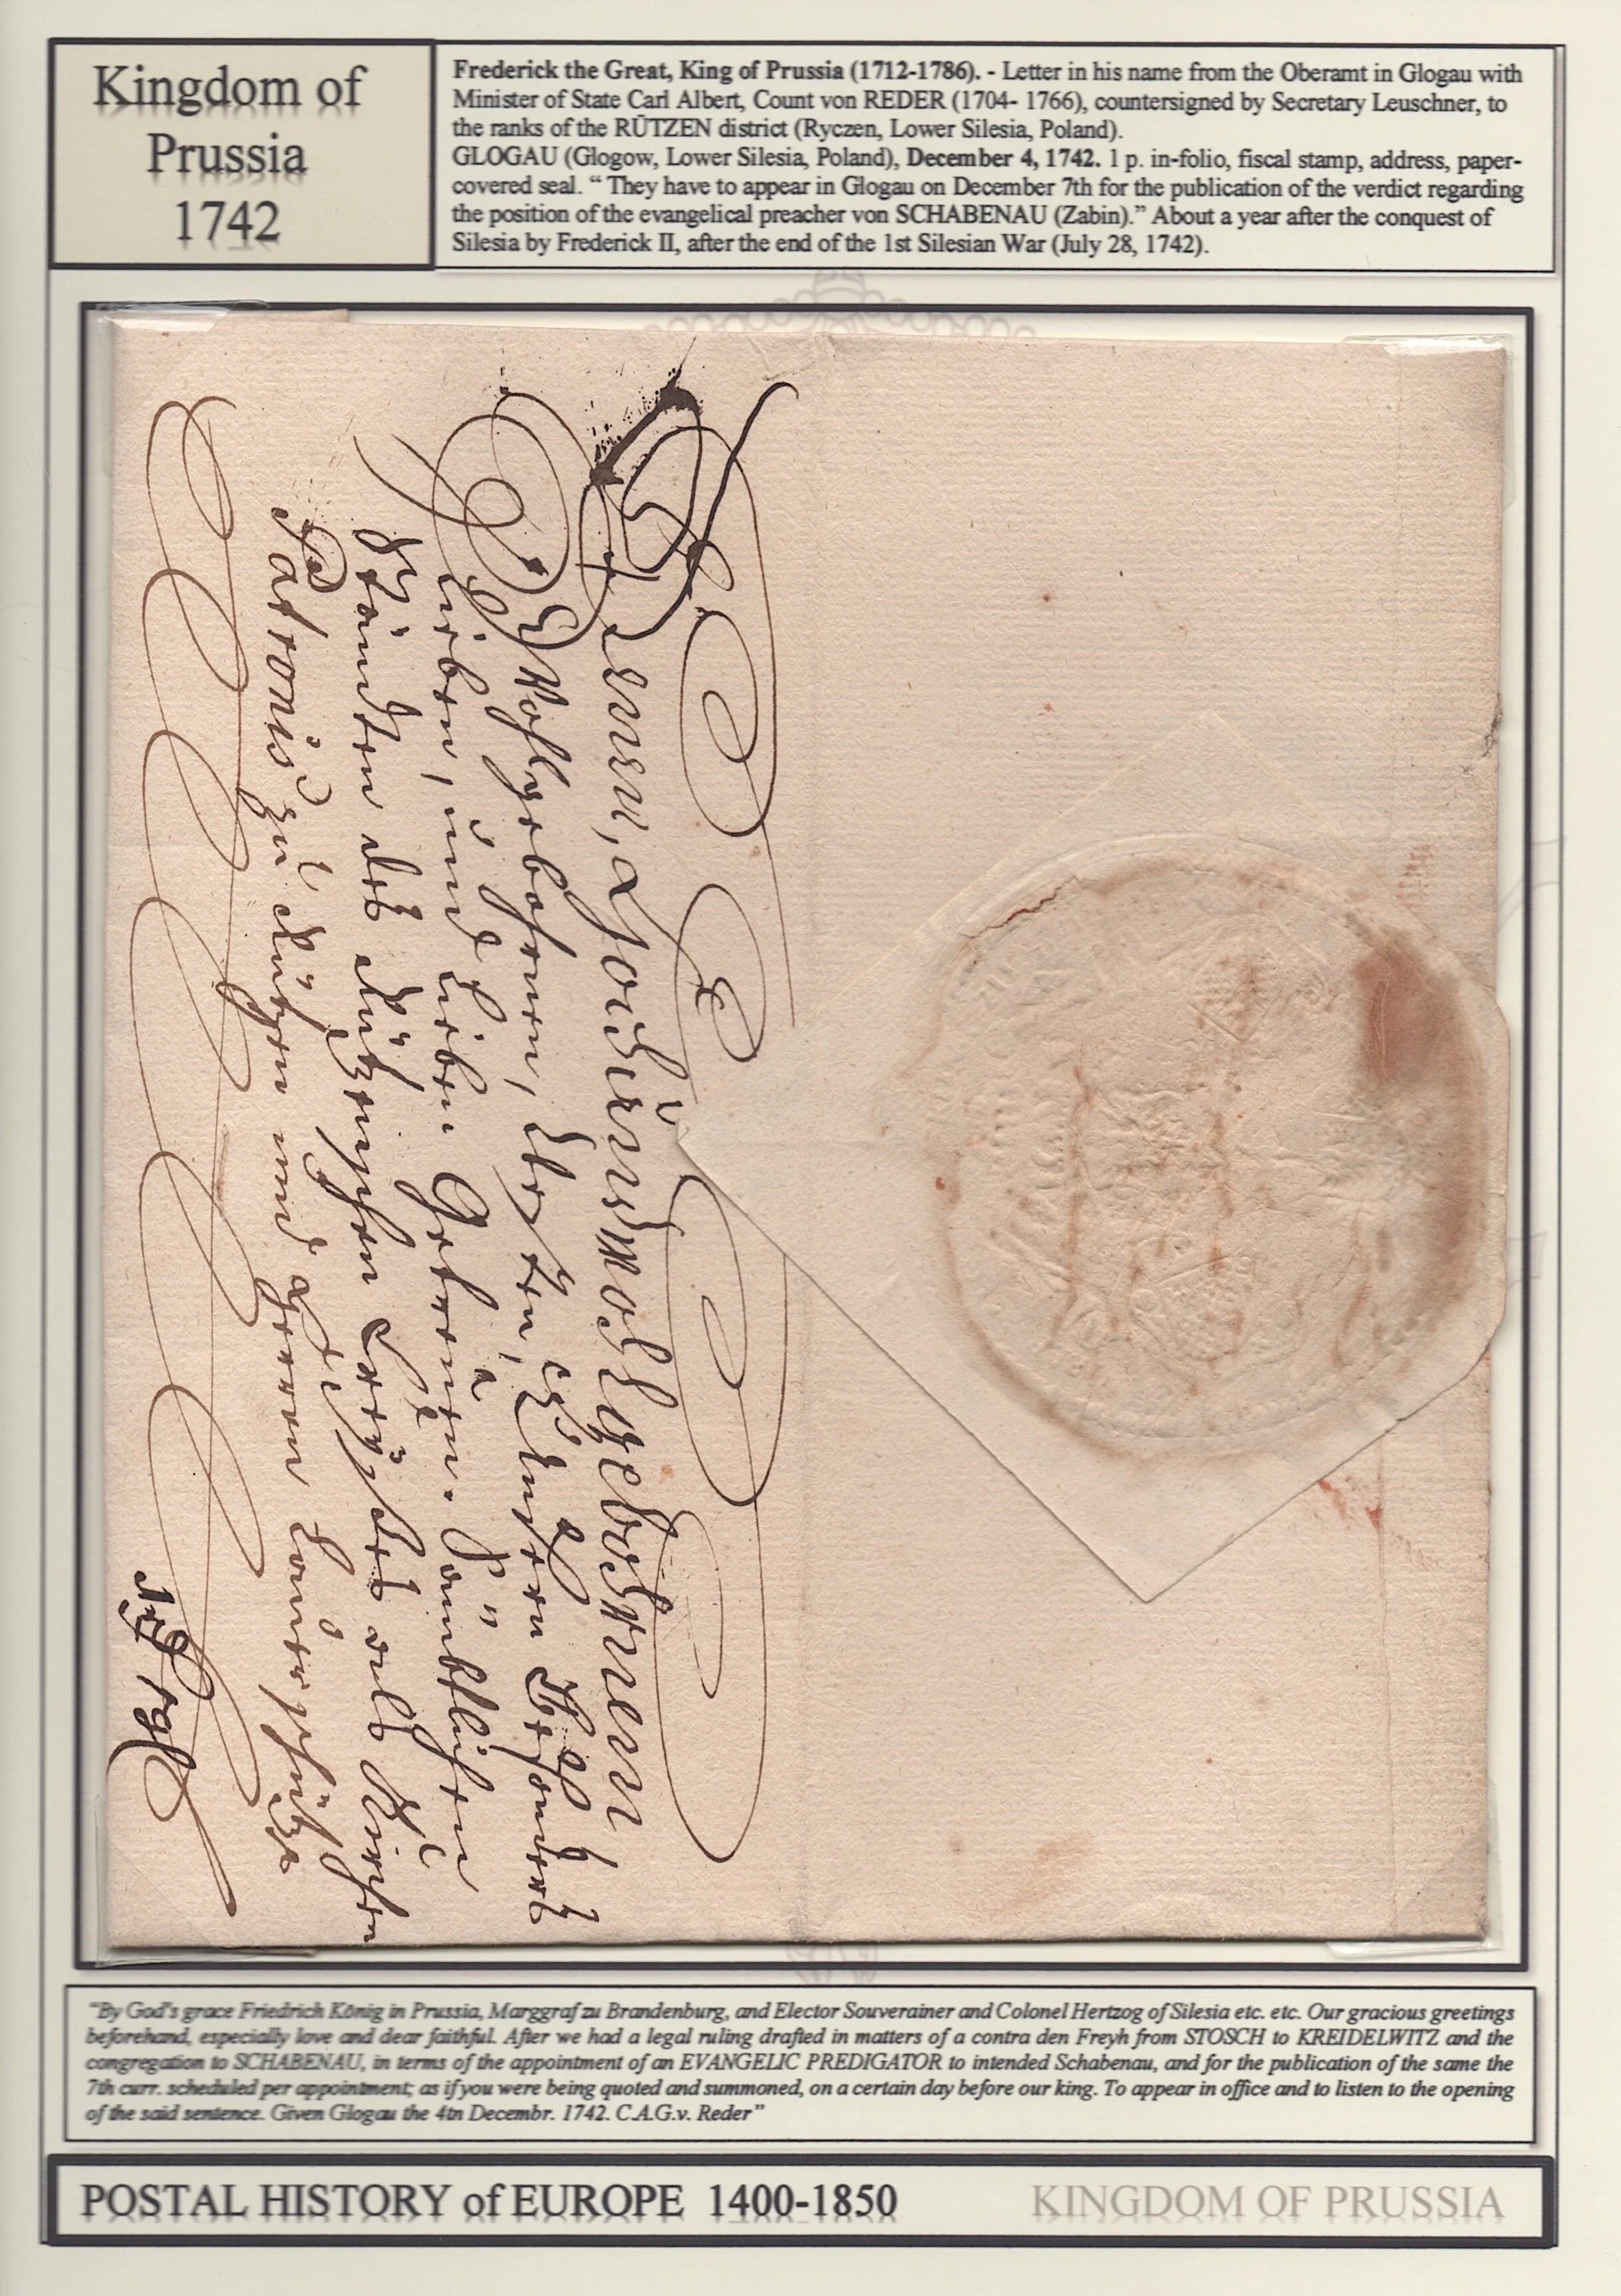 Kingdom of
Prussia
1742
Frederick the Great, King of Prussia (1712-1786). - Letter in his name from the Oberamt in Glogau with
Minister of State Carl Albert, Count von REDER (1704- 1766), countersigned by Secretary Leuschner, to
the ranks of the RÜTZEN district (Ryczen, Lower Silesia, Poland).
GLOGAU (Glogow, Lower Silesia, Poland), December 4, 1742. 1 p. in-folio, fiscal stamp, address, paper-
covered seal. “ They have to appear in Glogau on December 7th for the publication of the verdict regarding
the position of the evangelical preacher von SCHABENAU (Zabin).” About a year after the conquest of
Silesia by Frederick II, after the end of the 1st Silesian War (July 28, 1742).
Denen, Hoch und Wohlgebohrnen
Wohlgebohrnen, Edlen, Unsern Besonders
Lieben, und Lieben Getreuen. Sämbtlichen
Ständen des Rützenschen Creyses als Kirchen
Patronis zu Rützen und
"By God's grace Friedrich König in Prussia, Marggraf zu Brandenburg, and Elector Souverainer and Colonel Hertzog of Silesia etc. etc. Our gracious greetings
beforehand, especially love and dear faithful. After we had a legal ruling drafted in matters of a contra den Freyh from STOSCH to KREIDELWITZ and the
congregation to SCHABENAU, in terms of the appointment of an EVANGELIC PREDIGATOR to intended Schabenau, and for the publication of the same the
7th curr. scheduled per appointment; as if you were being quoted and summoned, on a certain day before our king. To appear in office and to listen to the opening
of the said sentence. Given Glogau the 4tn Decembr. 1742. C.A.G.v. Reder"
POSTAL HISTORY of EUROPE 1400-1850
KINGDOM OF PRUSSIA